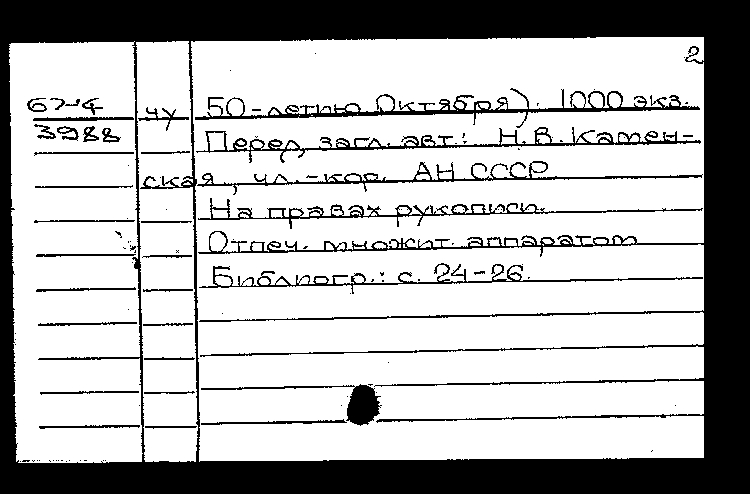 2
67-4 чу 50-летию Октября). 1000 экз.
3988 Перед загл. авт.: Н.В. Камен-
ская, чл.-кор. АН СССР
На правах рукописи.
Отпеч. множит. аппаратом
Библиогр.: с. 24-26.